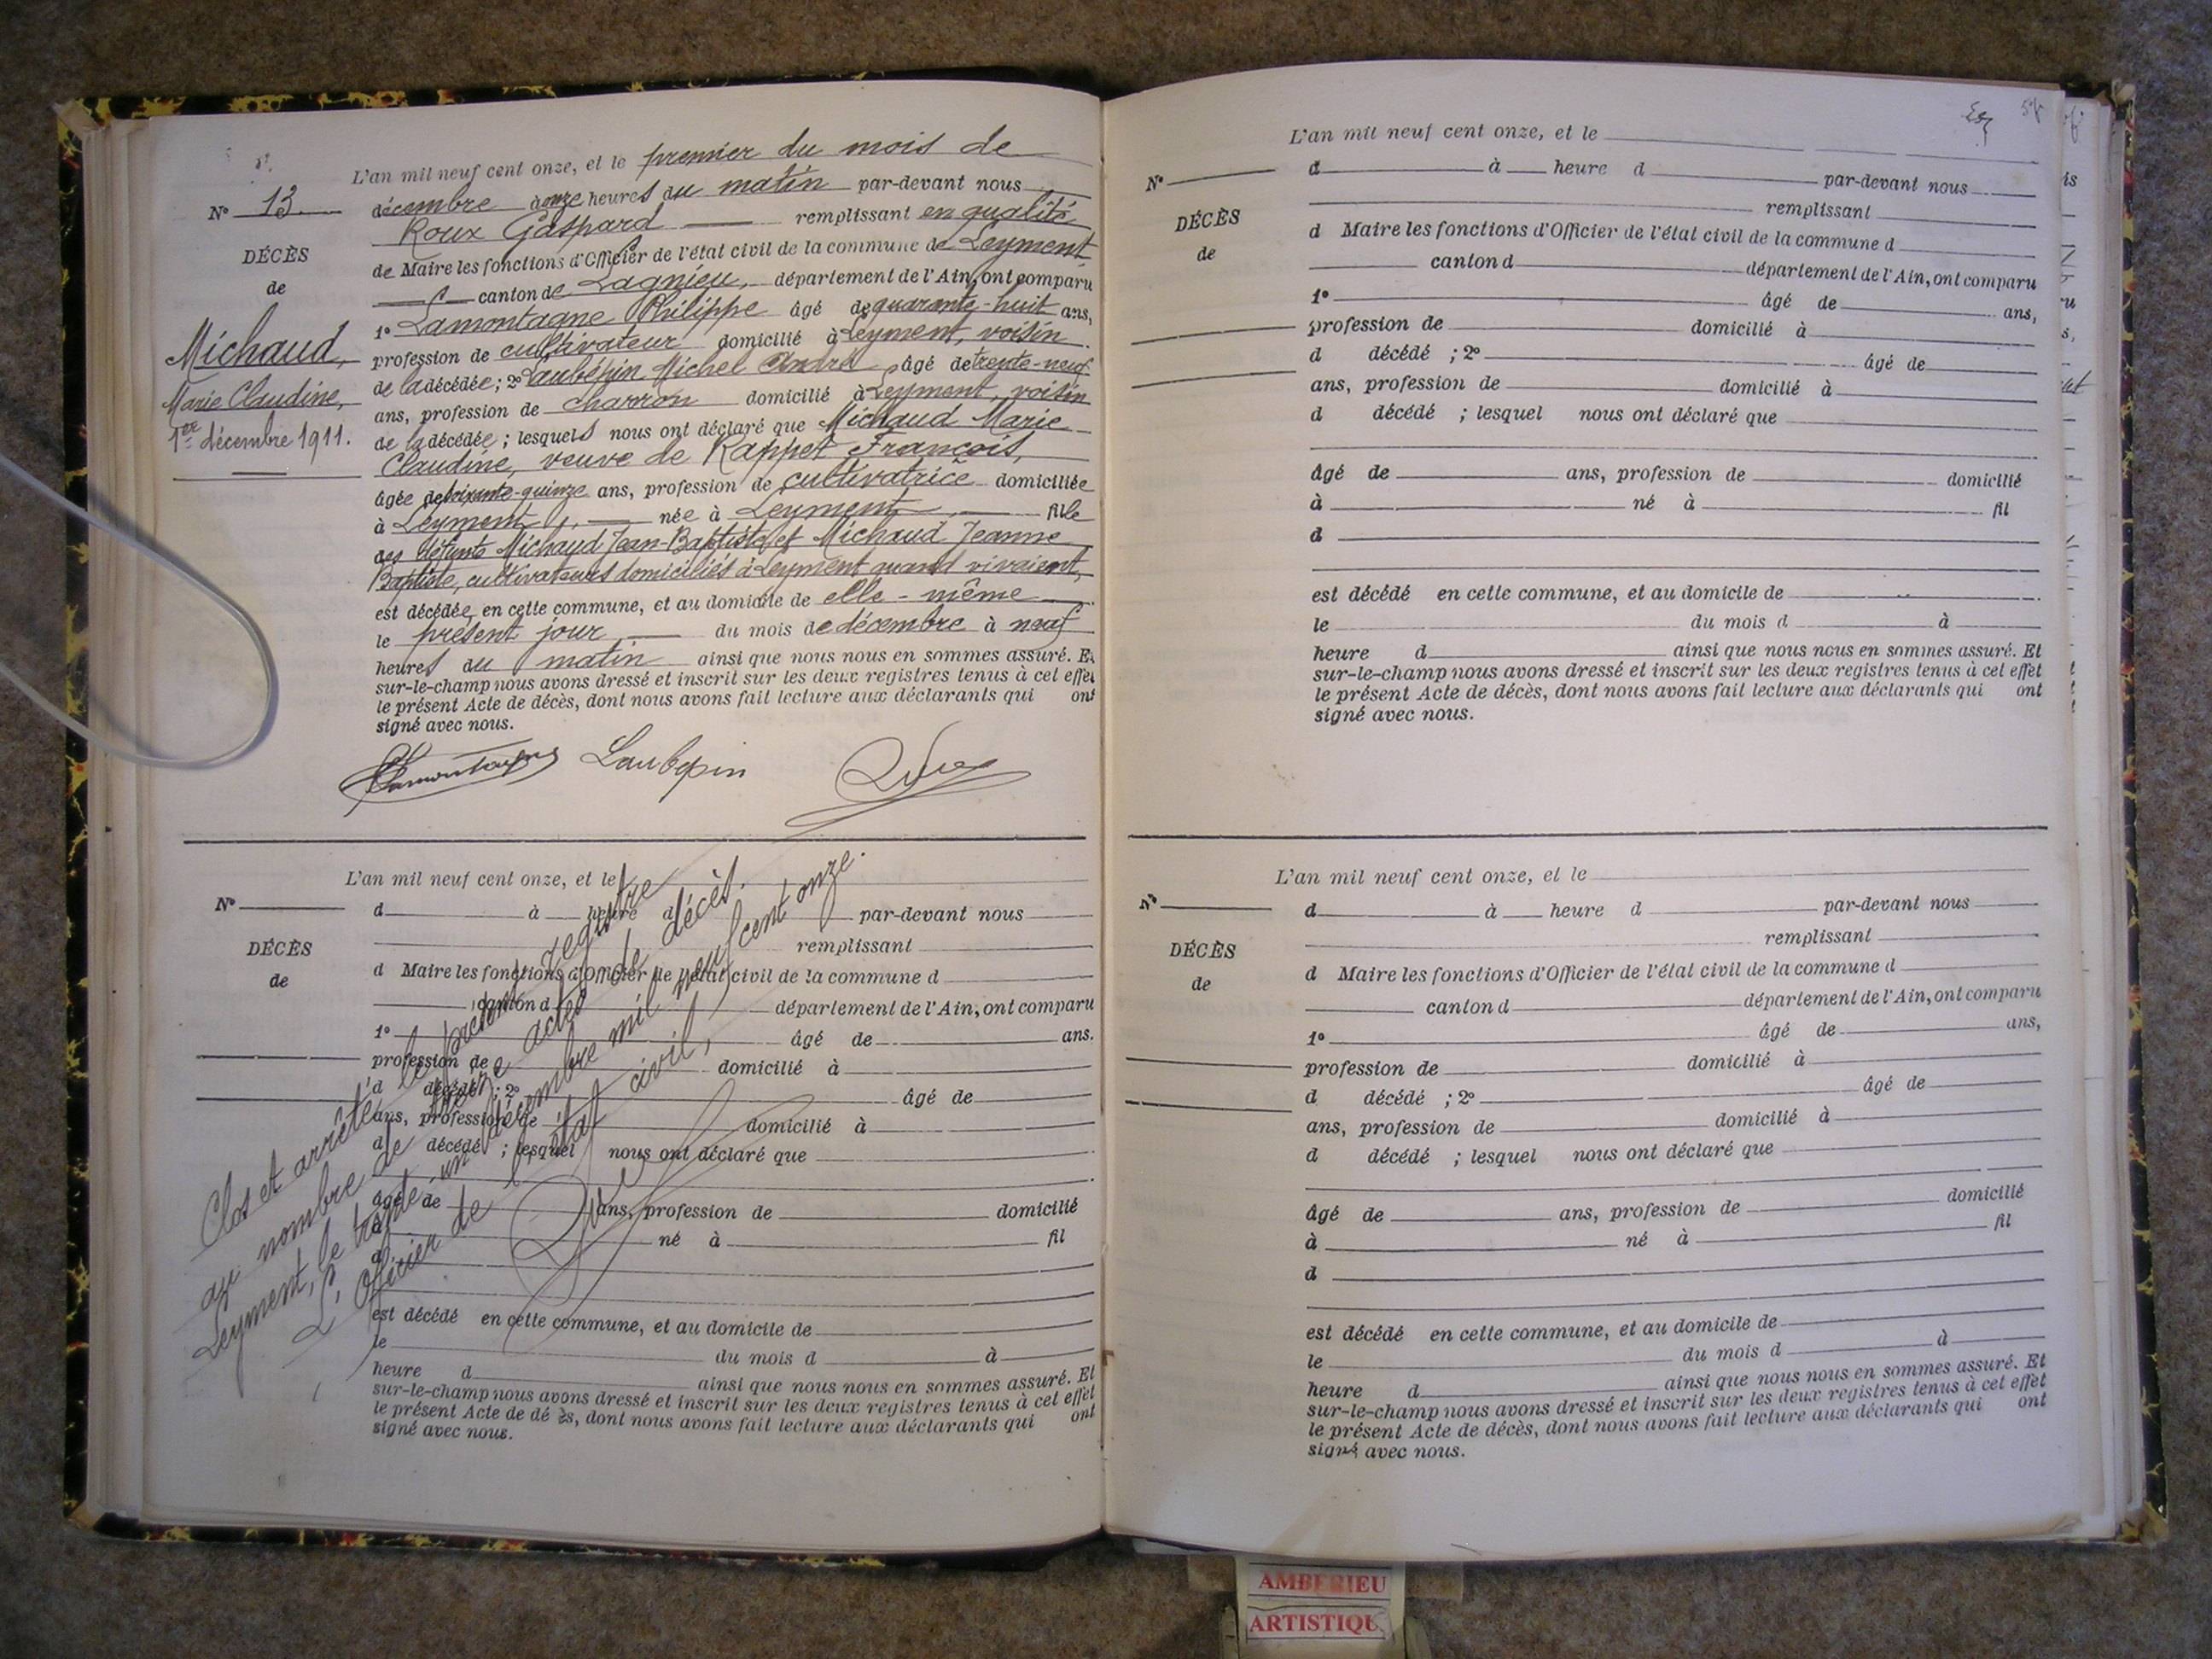 L'an mil neuf cent onze, et le premier du mois de
décembre à onze heures du matin par-devant nous
Nº 13
Roux Gaspard remplissant en qualité
DÉCÈS
de Maire les fonctions d'Officier de l'état civil de la commune de Leyment
de
canton de Lagnieu, département de l'Ain, ont comparu
1º Lamontagne Philippe âgé de quarante-huit ans,
Michaud,
profession de cultivateur domicilié à Leyment, voisin
de la décédée ; 2º Laubépin Michel André âgé de trente-neuf
Marie Claudine,
ans, profession de charron domicilié à Leyment, voisin
1er décembre 1911.
de la décédée ; lesquels nous ont déclaré que Michaud Marie
Claudine, veuve de Rappet François,
âgée de soixante-quinze ans, profession de cultivatrice domiciliée
à Leyment, née à Leyment, fille
des défunts Michaud Jean-Baptiste et Michaud Jeanne
Baptiste, cultivateurs domiciliés à Leyment quand vivaient,
est décédée en cette commune, et au domicile de elle-même
le présent jour, du mois de décembre à neuf
heures du matin ainsi que nous nous en sommes assuré. Et
sur-le-champ nous avons dressé et inscrit sur les deux registres tenus à cet effet
le présent Acte de décès, dont nous avons fait lecture aux déclarants qui ont
signé avec nous.
Lamontagne Laubepin
L'an mil neuf cent onze, et le
Nº
d à heure d par-devant nous
remplissant
DÉCÈS
d Maire les fonctions d'Officier de l'état civil de la commune d
de
canton d département de l'Ain, ont comparu
1º âgé de ans.
profession de domicilié à
d décédé ; 2º âgé de
ans, profession de domicilié à
d décédé ; lesquel nous ont déclaré que
âgé de ans, profession de domicilié
à né à fil
d
est décédé en cette commune, et au domicile de
le du mois d à
heure d ainsi que nous nous en sommes assuré. Et
sur-le-champ nous avons dressé et inscrit sur les deux registres tenus à cet effet
le présent Acte de décès, dont nous avons fait lecture aux déclarants qui ont
signé avec nous.
Clos et arrêté le présent registre
au nombre de treize actes de décès.
Leyment, le trente-un décembre mil neuf cent onze.
L'Officier de l'état civil,
L'an mil neuf cent onze, et le
Nº
d à heure d par-devant nous
remplissant
DÉCÈS
d Maire les fonctions d'Officier de l'état civil de la commune d
de
canton d département de l'Ain, ont comparu
1º âgé de ans,
profession de domicilié à
d décédé ; 2º âgé de
ans, profession de domicilié à
d décédé ; lesquel nous ont déclaré que
âgé de ans, profession de domicilié
à né à fil
d
est décédé en cette commune, et au domicile de
le du mois d à
heure d ainsi que nous nous en sommes assuré. Et
sur-le-champ nous avons dressé et inscrit sur les deux registres tenus à cet effet
le présent Acte de décès, dont nous avons fait lecture aux déclarants qui ont
signé avec nous.
L'an mil neuf cent onze, et le
Nº
d à heure d par-devant nous
remplissant
DÉCÈS
d Maire les fonctions d'Officier de l'état civil de la commune d
de
canton d département de l'Ain, ont comparu
1º âgé de ans,
profession de domicilié à
d décédé ; 2º âgé de
ans, profession de domicilié à
d décédé ; lesquel nous ont déclaré que
âgé de ans, profession de domicilié
à né à fil
d
est décédé en cette commune, et au domicile de
le du mois d à
heure d ainsi que nous nous en sommes assuré. Et
sur-le-champ nous avons dressé et inscrit sur les deux registres tenus à cet effet
le présent Acte de décès, dont nous avons fait lecture aux déclarants qui ont
signé avec nous.
AMBERIEU
ARTISTIQU